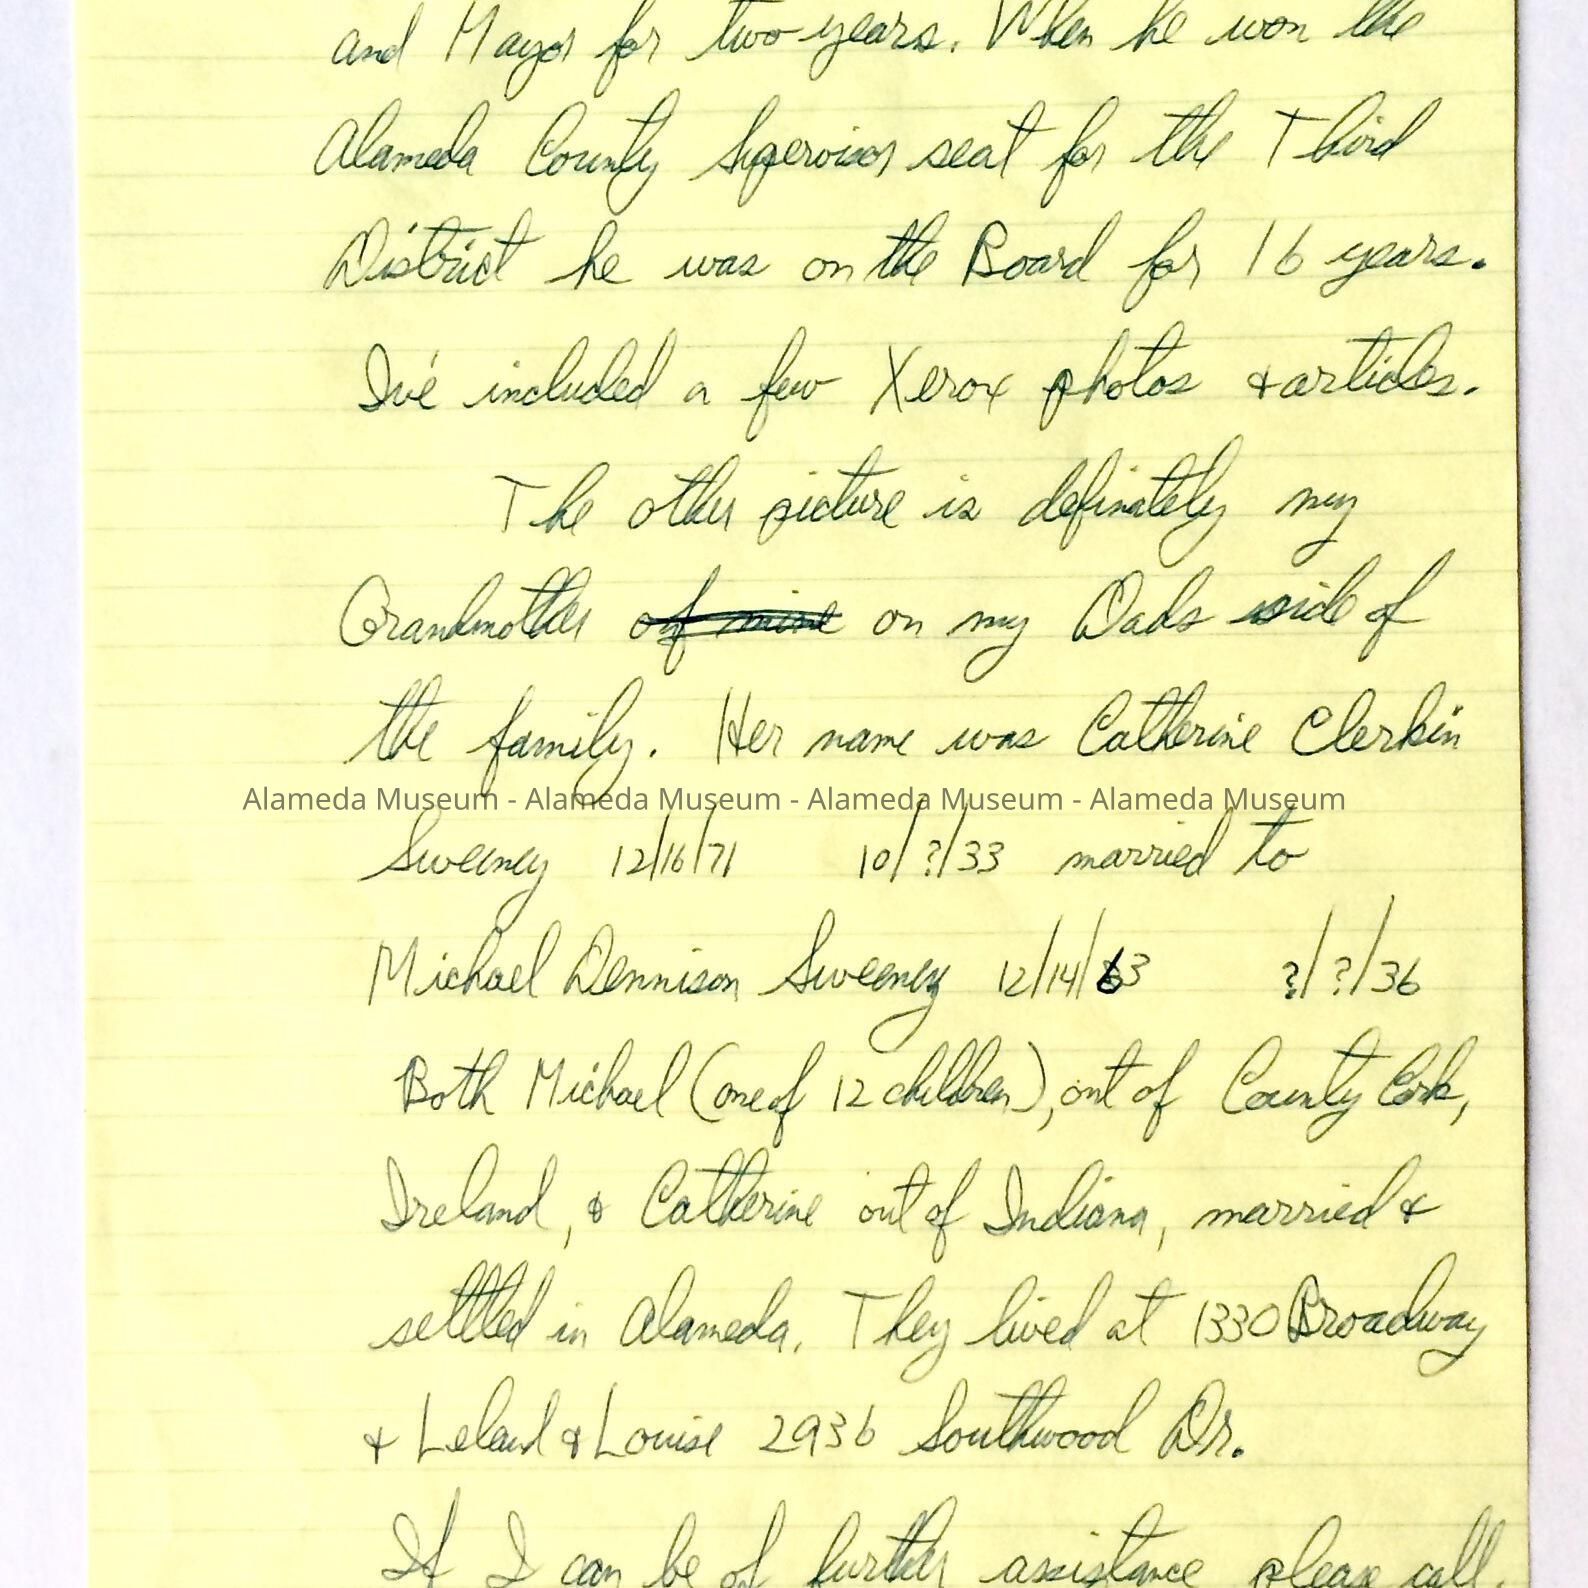 and Mayor for two years. When he won the
Alameda County Supervisor seat for the Third
District he was on the Board for 16 years.
I've included a few Xerox photos & articles.
The other picture is definately my
Grandmother of mine on my Dads side of
the family. Her name was Catherine Clerkin
Alameda Museum - Alameda Museum - Alameda Museum - Alameda Museum
Sweeney 12/16/71 10/?/33 married to
Michael Dennison Sweeney 12/14/63 ?/?/36
Both Michael (one of 12 children), out of County Cork,
Ireland, & Catherine out of Indiana, married &
settled in Alameda. They lived at 1330 Broadway
& Leland & Louise 2936 Southwood Dr.
If I can be of further assistance please call.